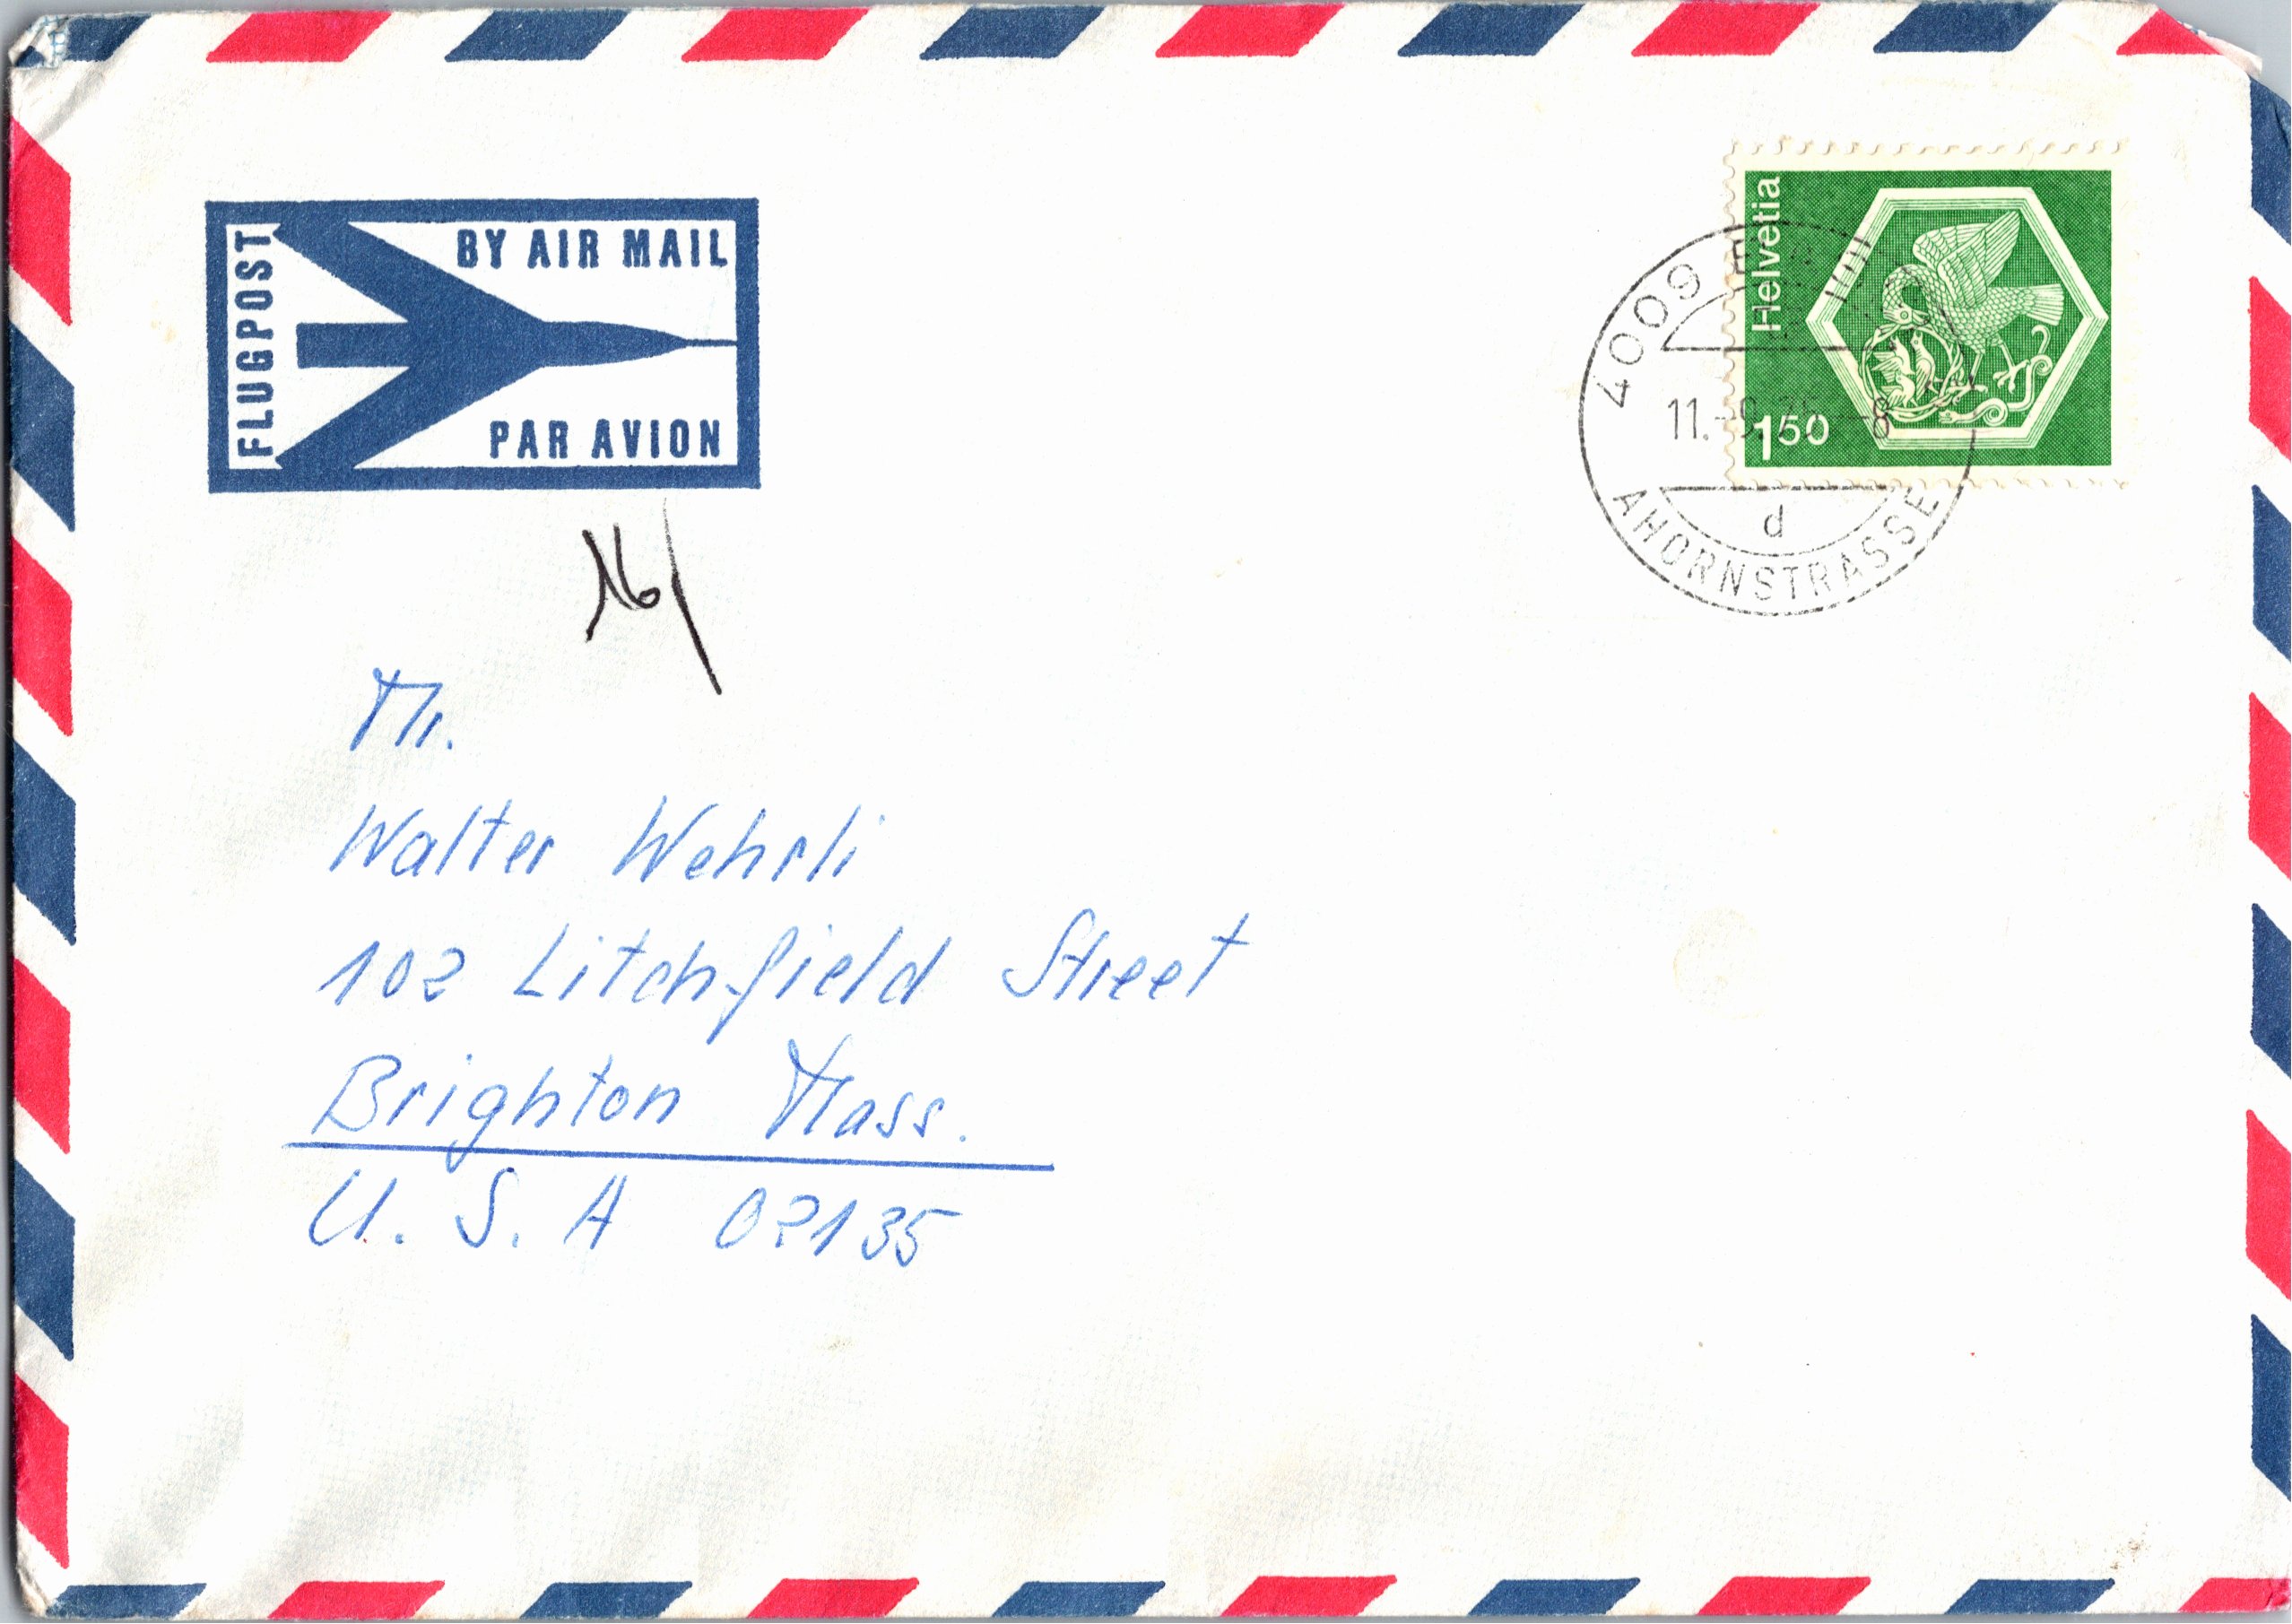 FLUGPOST
BY AIR MAIL
PAR AVION
Helvetia
150
4009
11.-9.
8
d
AHORNSTRASSE
Mr.
Walter Wehrli
102 Litchfield Street
Brighton Mass.
U. S. A 02135